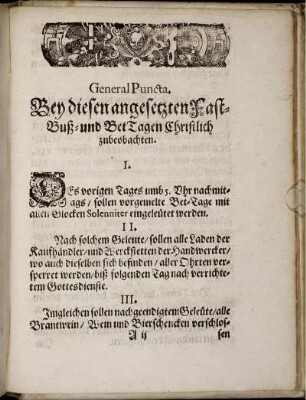 General Puncta.
Bey diesen angesetzten Fast-
Buß- und Bet Tagen Christlich
zubeobachten.
I.
DEs vorigen Tages umb 5. Uhr nachmit-
tags / sollen vorgemelte Bet-Tage mit
allen Glocken Solenniter eingeleutet werden.
II.
Nach solchem Geleute / sollen alle Laden der
Kauffhändler / und Werckstetten der Handwercker /
wo auch dieselben sich befinden / aller Ohrten ver-
sperret werden / biß folgenden Tag nach verrichte-
tem Gottesdienste.
III.
Imgleichen sollen nach geendigtem Geleute / alle
Brantwein / Wein und Bierschencken verschlos-
A ij sen